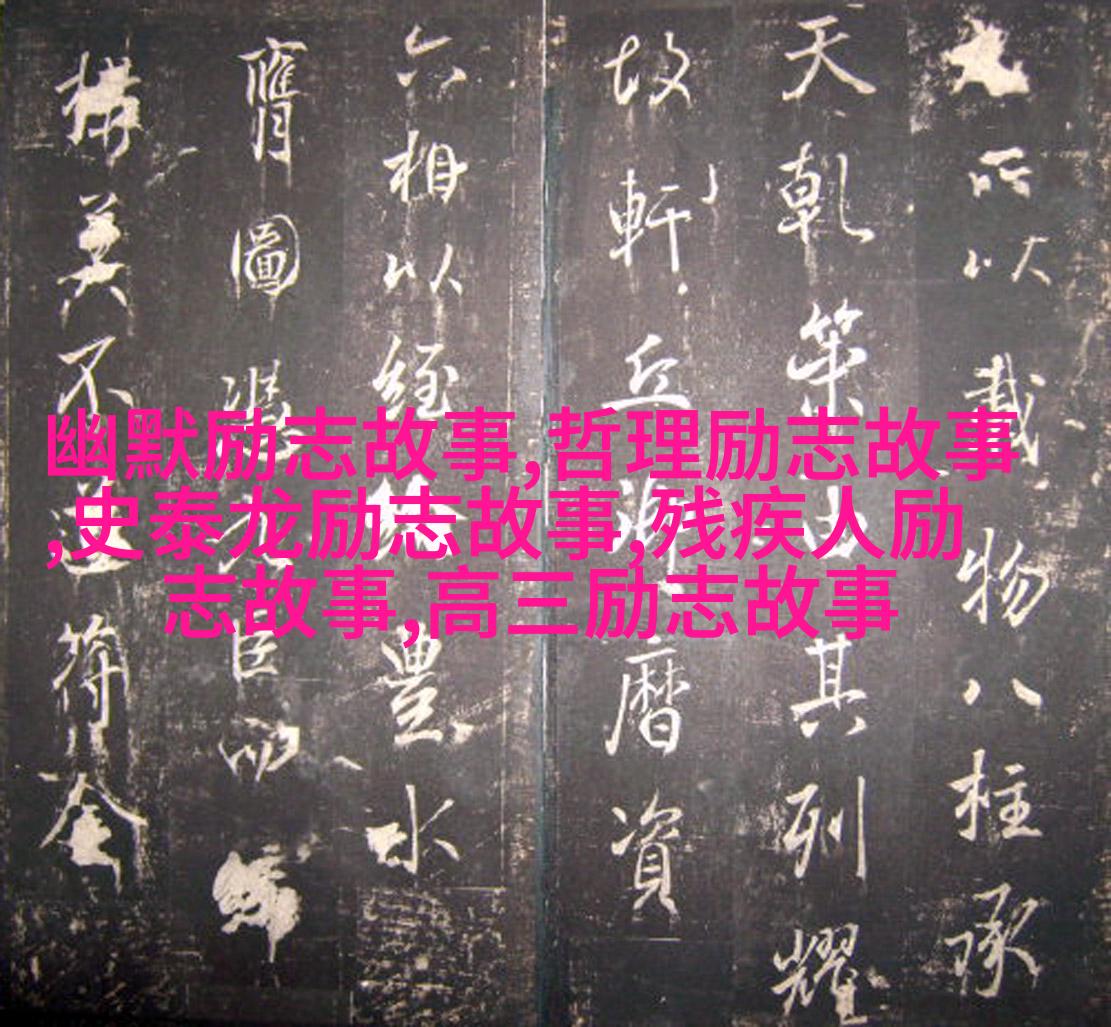 幽默励志故事,哲理励志故事
,史泰龙励志故事,残疾人励
志故事,高三励志故事
所以載物八柱承
天乾其列耀
故軒丘曆資
六相以經豐水
膺圖臣
構美不符